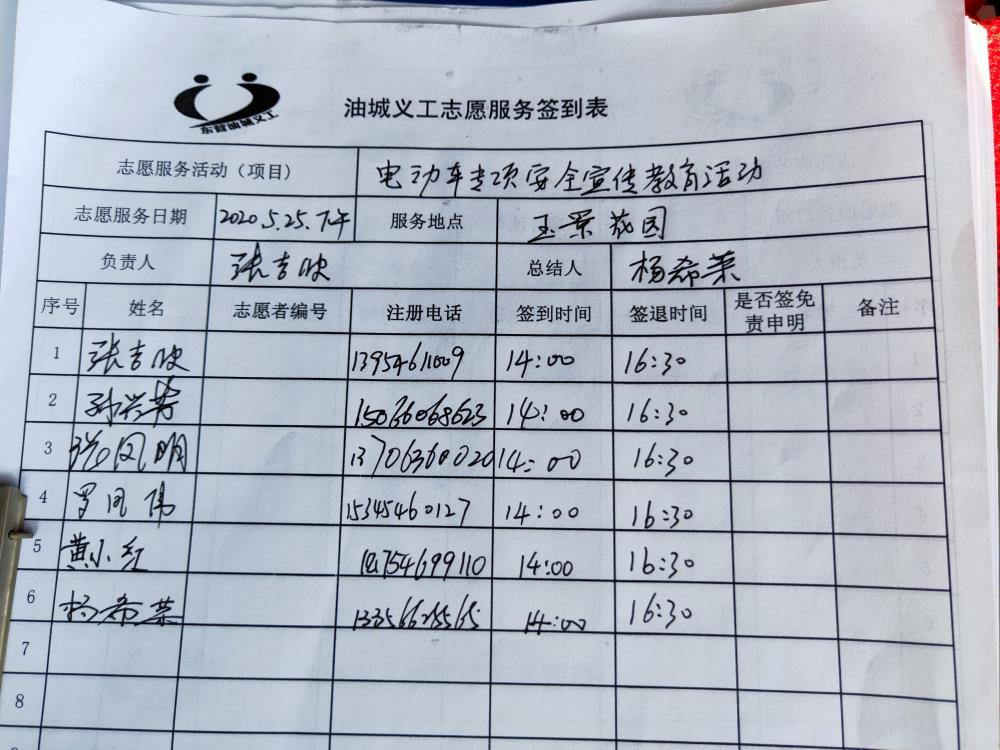 东营油城义工
油城义工志愿服务签到表
志愿服务活动（项目） 电动车专项安全宣传教育活动
志愿服务日期 2020.5.25.下午 服务地点 玉景花园
负责人 张吉波 总结人 杨希荣
序号 姓名 志愿者编号 注册电话 签到时间 签退时间 是否签免责申明 备注
1 张吉波 13954611009 14:00 16:30
2 孙兴芳 15066068623 14:00 16:30
3 张凤明 13706360020 14:00 16:30
4 罗同伟 15345460127 14:00 16:30
5 黄小红 14754699110 14:00 16:30
6 杨希荣 14:00 16:30
7
8